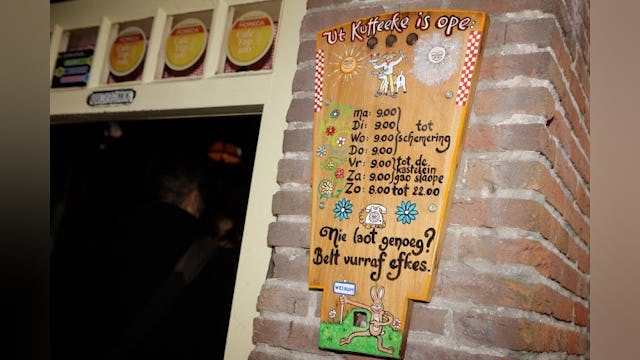 Ut Koffeeke is ope.
ma: 9.00
Di: 9.00
Wo: 9.00
Do: 9.00
tot
schemering
Vr: 9.00
Za: 9.00
tot de
kastelein
gao slaope
Zo: 8.00 tot 22.00
Nie laot genoeg?
Belt vurraf efkes.
WELKOM
HORECA
Café
Top
100
HORECA
HORECA
Café
Top
100